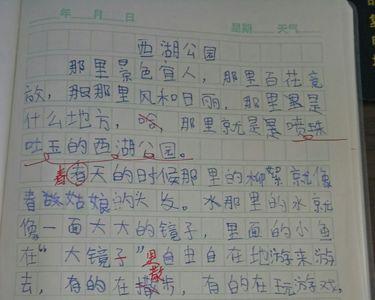 年 月 日 星期 天气
西湖公园
那里景色宜人，那里百花竞
放，那里风和日丽，那里是
什么地方，那里就是喷珠
吐玉的西湖公园。
春天的时候那里的柳絮就像
春姑娘的头发。那里的水就
像一面大大的镜子，里面的小鱼
在“大镜子”里自由自在地游来游
去，有的在散步，有的在玩游戏。